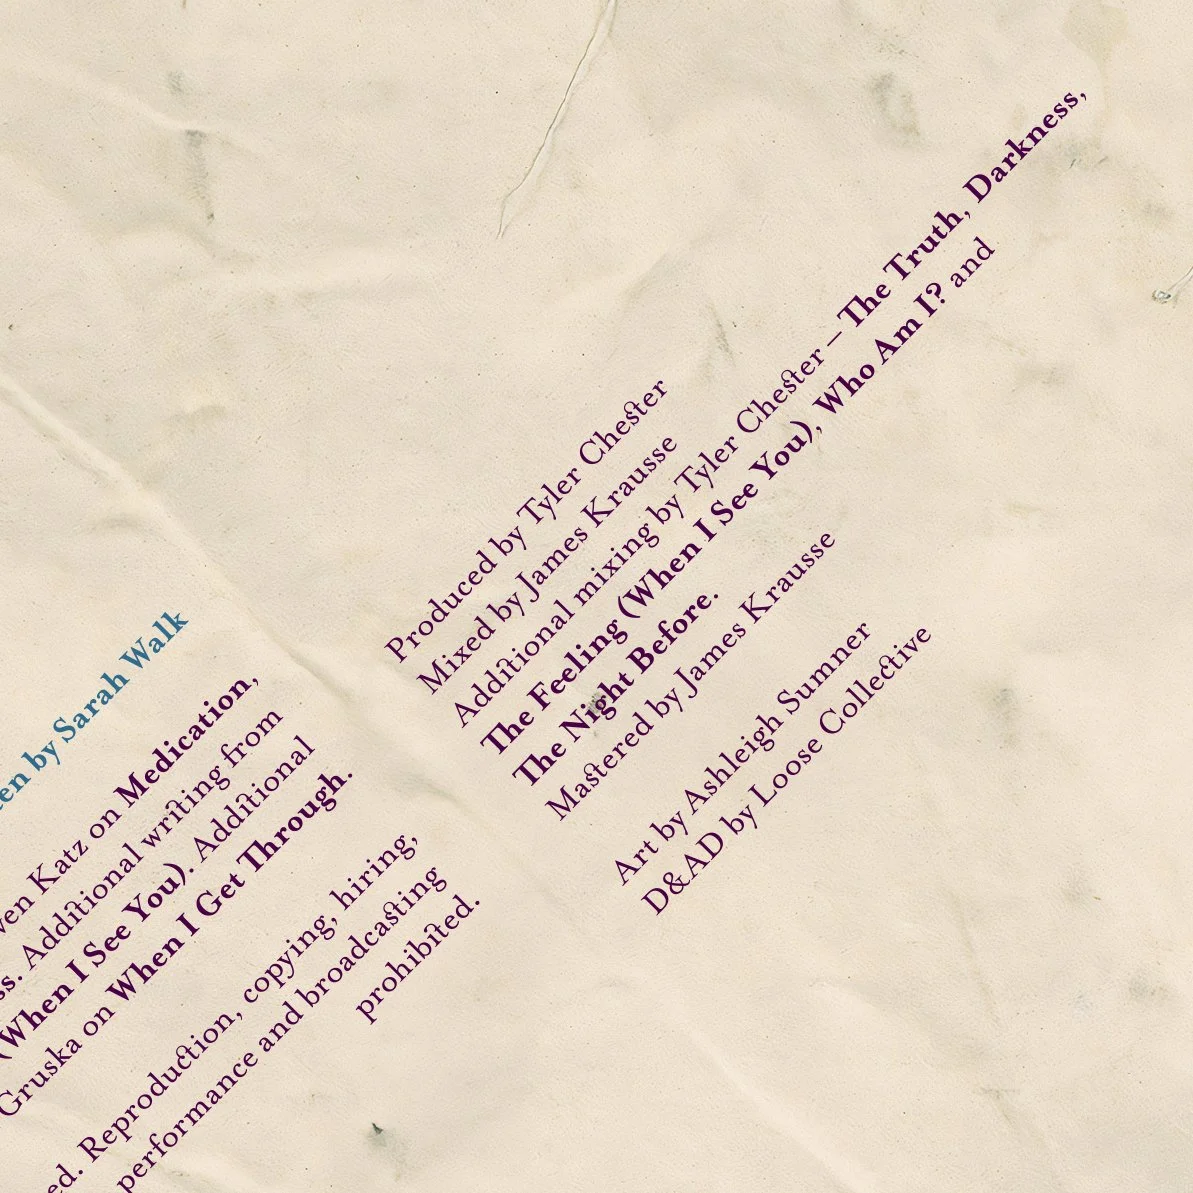 by Sarah Walk
Katz on Medication,
Additional writing from
(When I See You). Additional
Gruska on When I Get Through.
Reproduction, copying, hiring,
performance and broadcasting
prohibited.
Produced by Tyler Chester
Mixed by James Krausse
Additional mixing by Tyler Chester – The Truth, Darkness,
The Feeling (When I See You), Who Am I? and
The Night Before.
Mastered by James Krausse
Art by Ashleigh Sumner
D&AD by Loose Collective